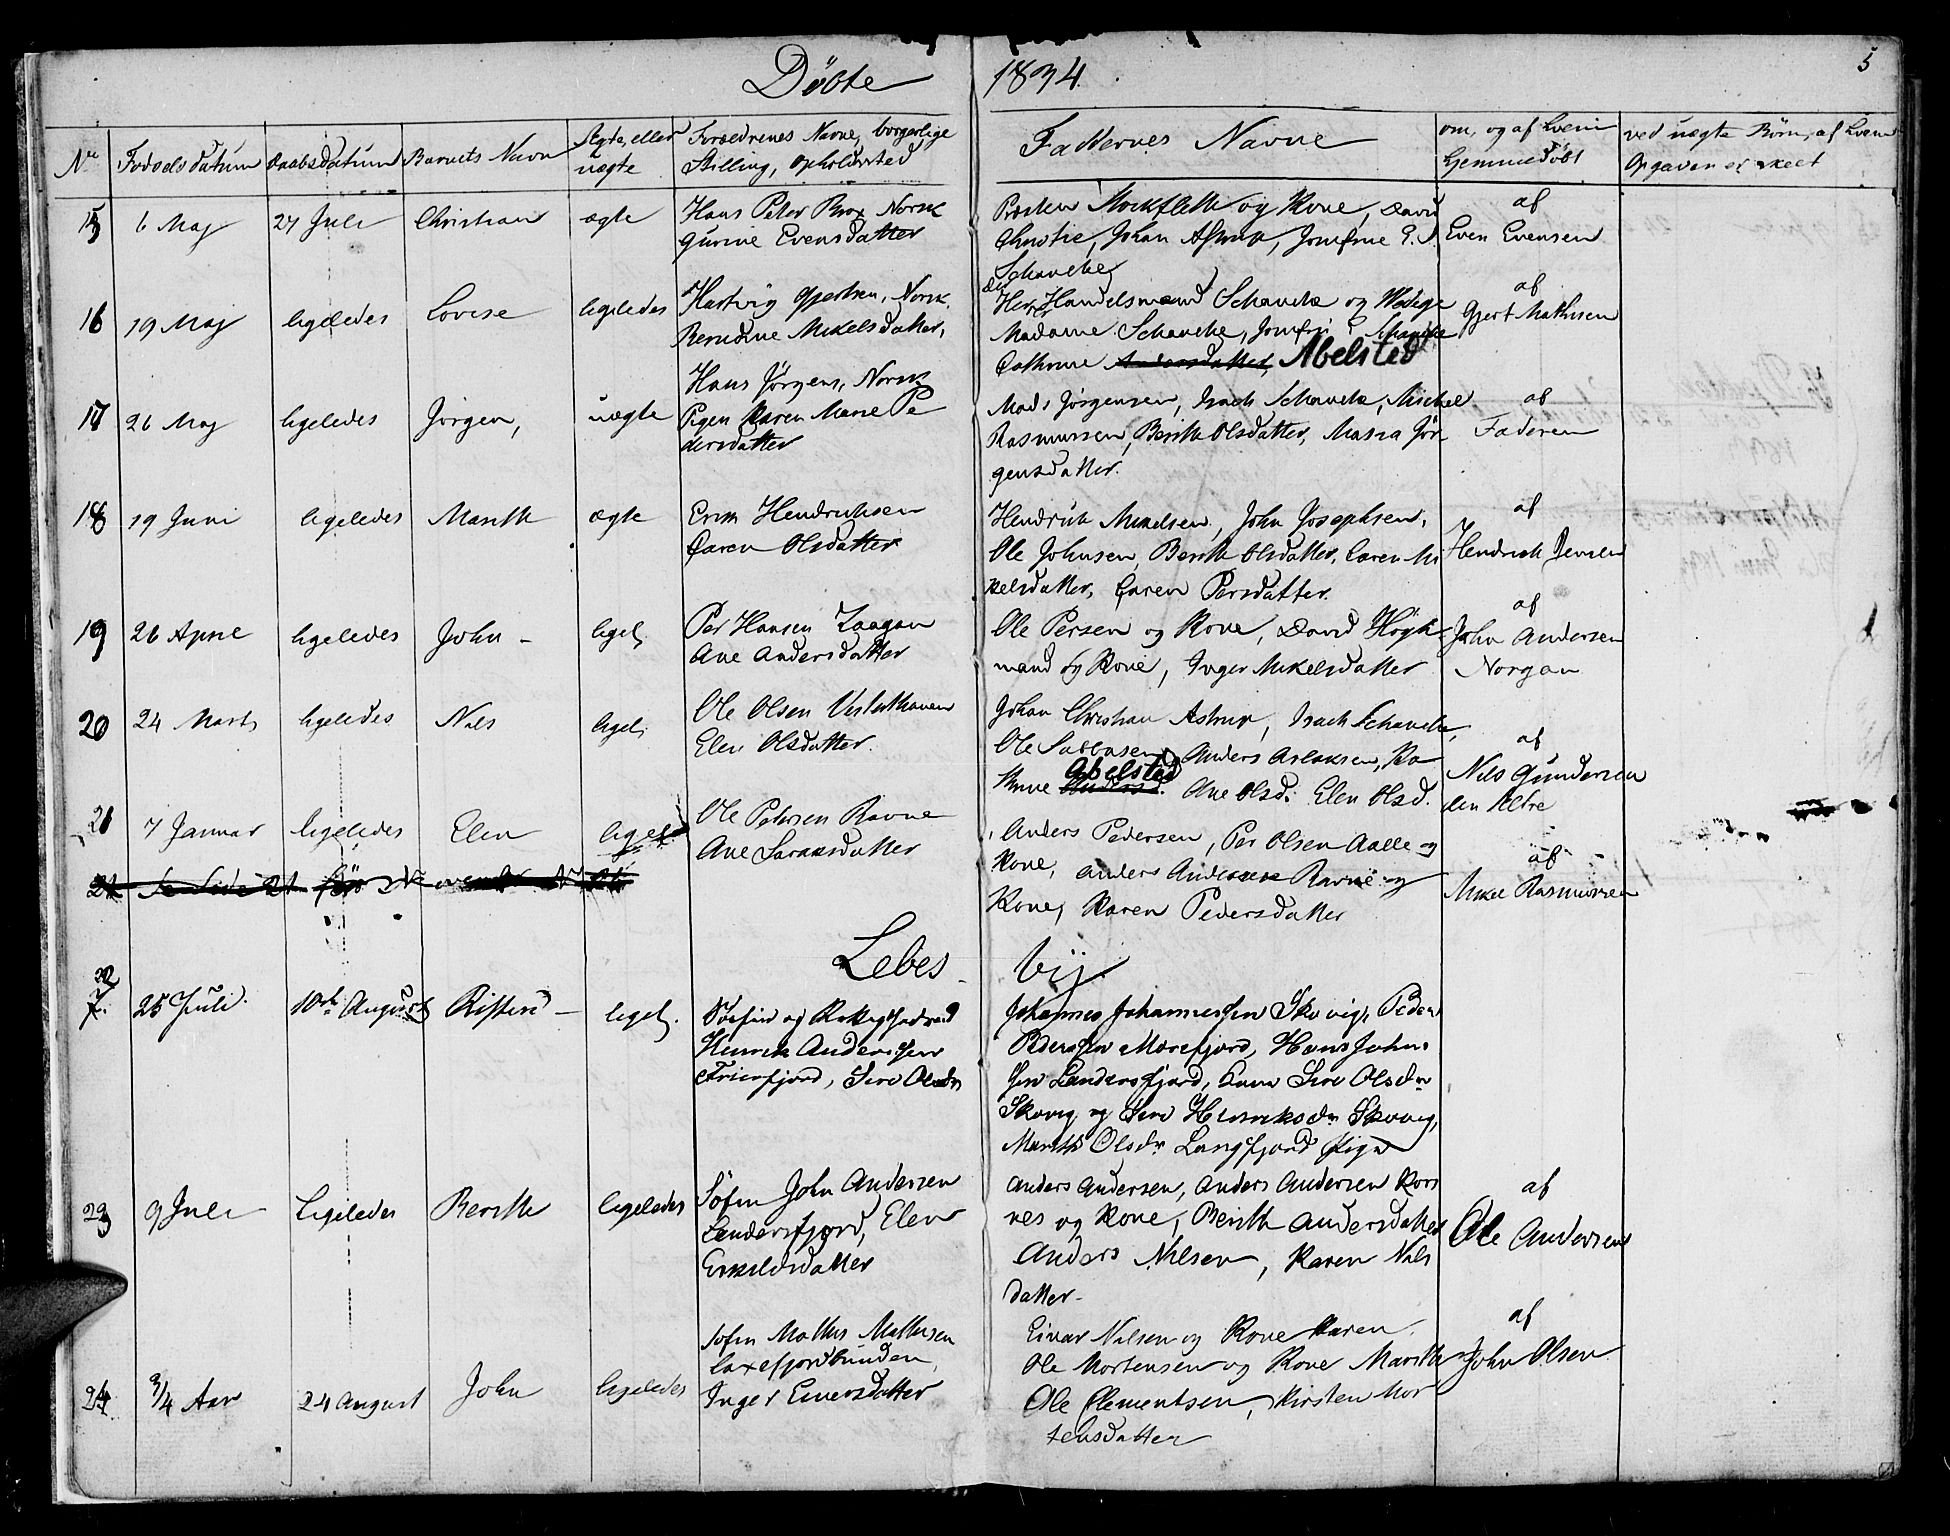 Döbte 1834. 5
No Födselsdatum Daabsdatum Barnets Navn Ægte, eller uægte Forældrenes Navne, borgerlige Stilling, Opholdssted Faddernes Navne om, og af hvem hjemmedöbt ved uægte Börn, af hvem Opgaven er skeet
15 6 Maj 27 Juli Christian ægte
Hans Peter Brox Norsk
Gurine Evensdatter
Præsten Stockfleth og Kone, David
Christie, Johan Astrup, Jomfrue
Schanche
af
Even Evensen
16 19 Maj ligeledes Lovise ligeledes
Hartvig Gjertsen, Norsk.
Berndine Mikelsdatter,
Handelsmand Schanche og
Madame Schanche, Jomfru Schanche
Cathrine Andersdatter, Abelsted
af
Gjert Mathisen
17 26 Maj ligeledes Jörgen, uægte
Hans Jörgens, Norsk
Pigen Karen Marie Pe
dersdatter
Mads Jörgensen, Isach Schanche, Michel
Rasmussen, Berith Olsdatter, Masia Jör
gensdatter.
af
Faderen
18 19 Juni ligeledes Marith ægte
Erik Hendrichsen
Caren Olsdatter
Hendrich Mikelsen, John Josephsen,
Ole Johnsen, Berith Olsdatter, Caren Mi
kelsdatter, Caren Persdatter.
af
Hendrich Jensen
19 26 Aprile ligeledes John - ligel.
Per Hansen Laagan
Ane Andersdatter
Ole Persen og Kone, David Högh
mand og Kone, Inger Mikelsdatter
af
John Andersen
Norgan
20 24 Marts ligeledes Nils ligel.
Ole Olsen Vesterthanen
Elen Olsdatter.
Johan Christian Astrup, Isach Schanche,
Ole Sabbasen, Anders Aslaksen, Ka
thrine Andersd. Abelsted Ane Olsd. Elen Olsd.
af
Nils Gundersen
den Æltre
21 7 Januar ligeledes Elen ligel.
Ole Petersen Ravne
Ane Sarasdatter
Anders Pedersen, Per Olsen Aalle og
Kone, Anders Andersen Ravne og
Kone, Karen Pedersdatter
af
Mikel Rasmussen
21 Se Side 21 for November
Lebesbÿe
22
7. 25 Juli. 10de August Risten - ligel.
Söefin og
Henrik Anderssen
Frierfjord, Siri Olsdr
Johannes Johannessen Skovig, Peder
Pederssen Mårefjord, Hans John-
sen Landersfjord, Siri Olsdr
Skovig og Siri Henriksdr Skovig,
Marith Olsdr Langfjord Pige
23 9 Juli Ligeledes Berith ligeledes
Söfin John Andersen
Lendersfjord, Elen
Erikildsdatter
Anders Andersen, Anders Andersen Kors
nes og Kone, Berith Andersdatter
Anders Nilsen, Karen Nils
datter-
af
Ole Andersen
24 3/4 Aar 24 August John ligeledes
Söfin Mathis Mathisen
Laxefjordbunden,
Inger Einersdatter
Einar Nilsen og Kone Karen
Ole Mortensen og Kone Marith
Ole Clementsen, Kirsten Mor
tensdatter
af
John Olsen